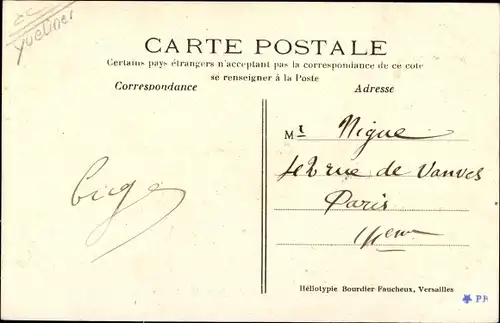 Yvelines
CARTE POSTALE
Certains pays étrangers n'acceptant pas la correspondance de ce coté
se renseigner à la Poste
Correspondance
Adresse
Mr Nigue
rue de Vanves
Paris
Héliotypie Bourdier-Faucheux, Versailles
PB